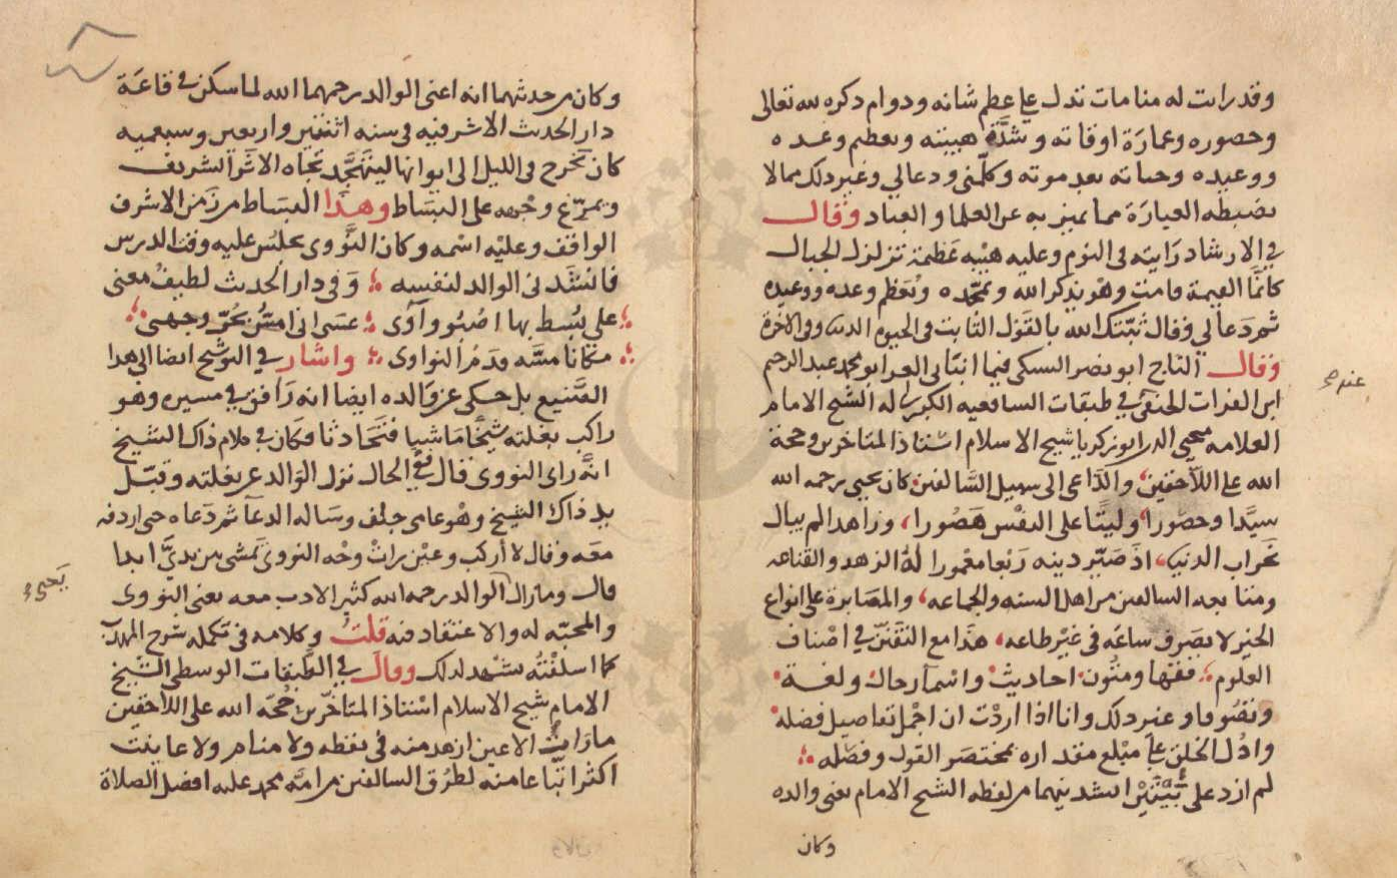 وقد رات له منامات تدل على عظم شانه ودوام ذكره لله تعالى
وحضوره وعمارة اوقاته وشدة هيبته وتعظيم وعده
ووعيده وحياته بعد موته وكلمني ودعا لي وغير ذلك مما لا
تضبطه العبارة مما يميز به عن العلما والعباد وقال
في الارشاد رايته في النوم وعليه هيبة عظيمة تزلزل الجبال
كانما القيمة قامت وهو يذكر الله ويمجده ويعظم وعده ووعيده
ثم دعا لي وقال ثبتك الله بالقول الثابت في الحيوة الدنيا وفي الاخرة
وقال التاج ابو نصر السبكي فيما انبانى العز ابو محمد عبد الرحيم
ابن الفرات الحنفي في طبقات الشافعيه الكبرى له الشيخ الامام
العلامه محيي الدين ابو زكريا شيخ الاسلام استاذ المتاخرين وحجة
الله على اللاحقين والداعي الى سبيل السالفين كان يحيى رحمه الله
سيدا وحصورا وليثا على النفس هصورا وزاهدا لم يبال
بخراب الدنيا اذ صير دينه ربعا معمورا له الزهد والقناعه
ومتابعه السالفين من اهل السنه والجماعه والمصابرة على انواع
الخير لا يصرف ساعه في غير طاعه هذا مع التفنن في اصناف
العلوم فقها ومتون احاديث واسما رجال ولغة
وتصوفا وغير ذلك وانا اذا اردت ان اجمل تفاصيل فضله
وادل الخلق على مبلغ مقداره بمختصر القول وفصله
لم ازد على بيتين انشدنيهما من لفظه الشيخ الامام يعني والده
وكان
وكان من حديثهما انه اعنى الوالد رحمهما الله لما سكن في قاعة
دار الحديث الاشرفيه في سنه اثنتين واربعين وسبعميه
كان يخرج في الليل الى ايوانها ليتهجد تجاه الاثر الشريف
ويمرغ وجهه على البساط وهذا البساط من زمن الاشرف
الواقف وعليه اسمه وكان النووى يجلس عليه وقت الدرس
فانشدني الوالد لنفسه وفي دار الحديث لطيف معنى
على بسط بها اصبو وآوى عسى انى امس بحر وجهي
مكانا مسه قدم النواوى واشار في التوشيح ايضا الى هذا
الصنيع بل حكى عن والده ايضا انه رافق في مسيره وهو
راكب بغلته شيخا ماشيا فتحادثا فكان في كلام ذاك الشيخ
انه راى النووى قال ففي الحال نزل الوالد عن بغلته وقبل
يد ذاك الشيخ وهو عامى جلف وساله الدعآ ثم دعاه حتى اردفه
معه وقال لا اركب وعين رات وجه النووى تمشى بين يدي ابدا
قال وما زال الوالد رحمه الله كثير الادب معه يعنى النووى
والمحبه له والاعتقاد فيه قلت وكلامه في تكمله شرح المهذب
كما اسلفته يشهد لذلك وقال في الطبقات الوسطى الشيخ
الامام شيخ الاسلام استاذ المتاخرين حجة الله على اللاحقين
ما رات الاعين ازهد منه في يقظه ولا منام ولا عاينت
اكثر اتباعا منه لطرق السالفين من امة محمد عليه افضل الصلاة